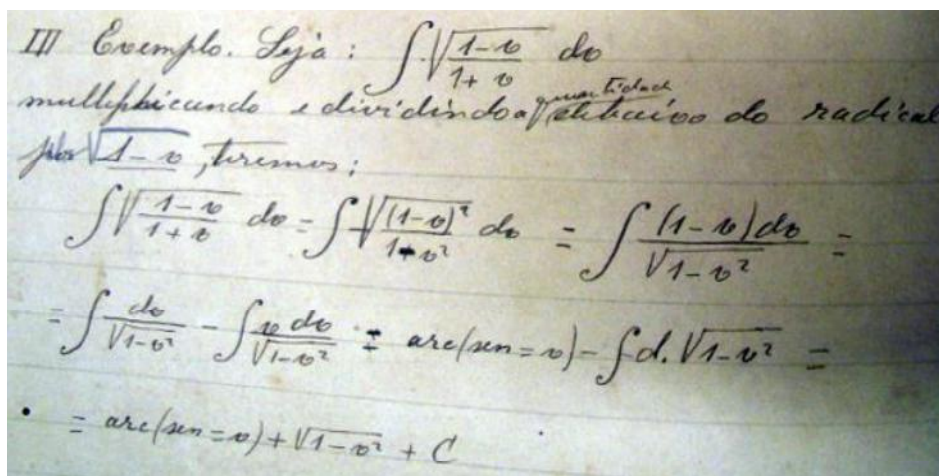 III Exemplo. Seja : ∫ √((1-v)/(1+v)) dv
multiplicando e dividindo a quantidade debaixo do radical
por √(1-v), teremos;
∫ √((1-v)/(1+v)) dv = ∫ √((1-v)²/(1-v²)) dv = ∫ (1-v)dv/√(1-v²) =
= ∫ dv/√(1-v²) - ∫ v dv/√(1-v²) = arc(sen=v) - ∫d.√(1-v²) =
= arc(sen=v) + √(1-v²) + C